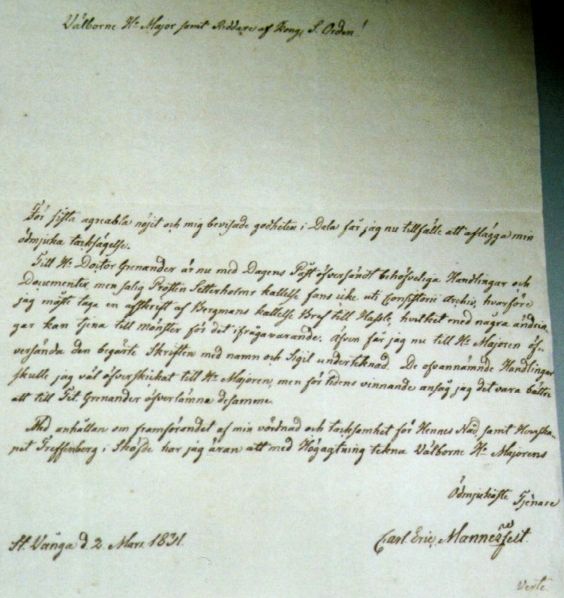 Välborne Hr Major samt Riddare af Kongl. S. Orden!
För sista agreabla nöjet och mig bevisade godheten i Dala får jag nu tillfälle att aflägga min
ödmjuka tacksägelse.
Till Hr Doctor Grenander är nu med Dagens Påst öfversändt behöfveliga Handlingar och
Documenter, men salig Prosten Setterholms kallelse fans icke uti Consistorii Archiv, hvarföre
jag måste taga en afskrift af Bergmans kallelse Bref till Hassle, hvilket med några ändrin
gar kan tjena till mönster för det ifrågavarande. Äfven får jag nu till Hr Majoren öf-
versända den begärte Skriften med namn och Sigil undertecknad. De ofvannämnde Handlingar
skulle jag väl öfverskickat till Hr Majoren, men för tidens vinnande ansåg jag det vara bättre
att till Tit Grenander öfverlämna desamme.
Med anhållan om framförandet af min vördnad och tacksamhet för Hennes Nåd, samt Herrska-
pet Treffenberg i Sköfde har jag äran att med Högagtning tekna Välborne Hr Majorens
Ödmjukaste Tjenare
Carl Eric Mannerfelt
St. Vånga d. 2 Mars 1831.
Verte